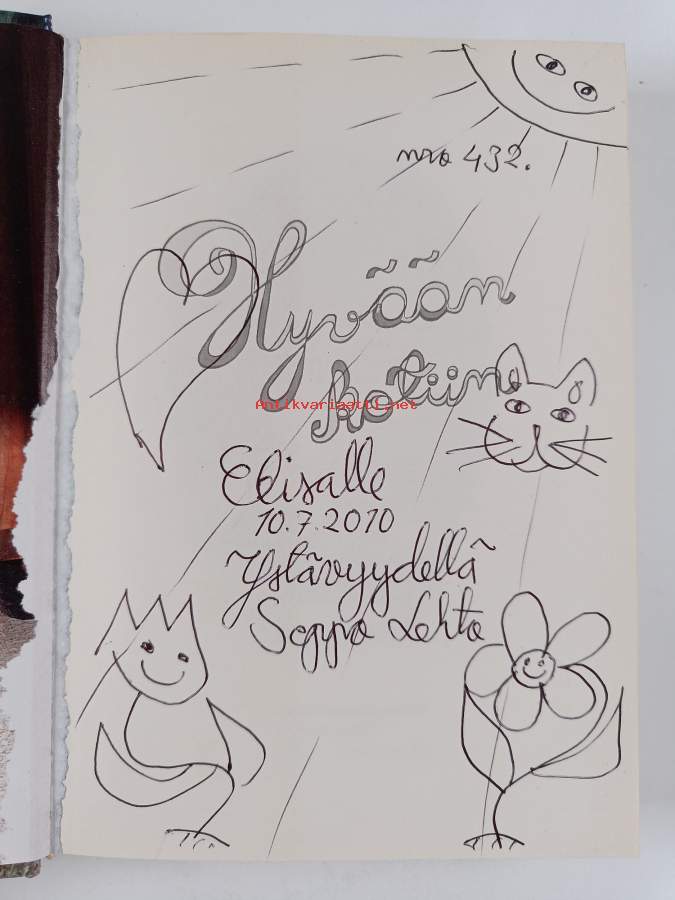 nro 432.
Hyvään
kotiin
Antikvariaatti.net
Elisalle
10.7.2010
Ystävyydellä
Seppo Lehto